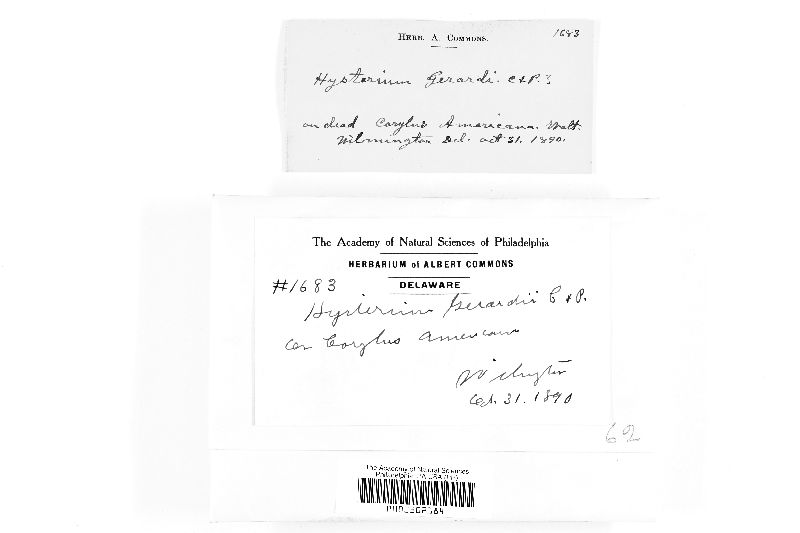 HERB. A. COMMONS.
1683
Hysterium Gerardi. C & P.
on dead Corylus Americana. Walt.
Wilmington Del. oct 31. 1890.
The Academy of Natural Sciences of Philadelphia
HERBARIUM of ALBERT COMMONS
DELAWARE
#1683
Hysterium Gerardii C & P.
on Corylus Americana
Wilmington
Oct. 31. 1890
62
The Academy of Natural Sciences
Philadelphia PA USA (PH)